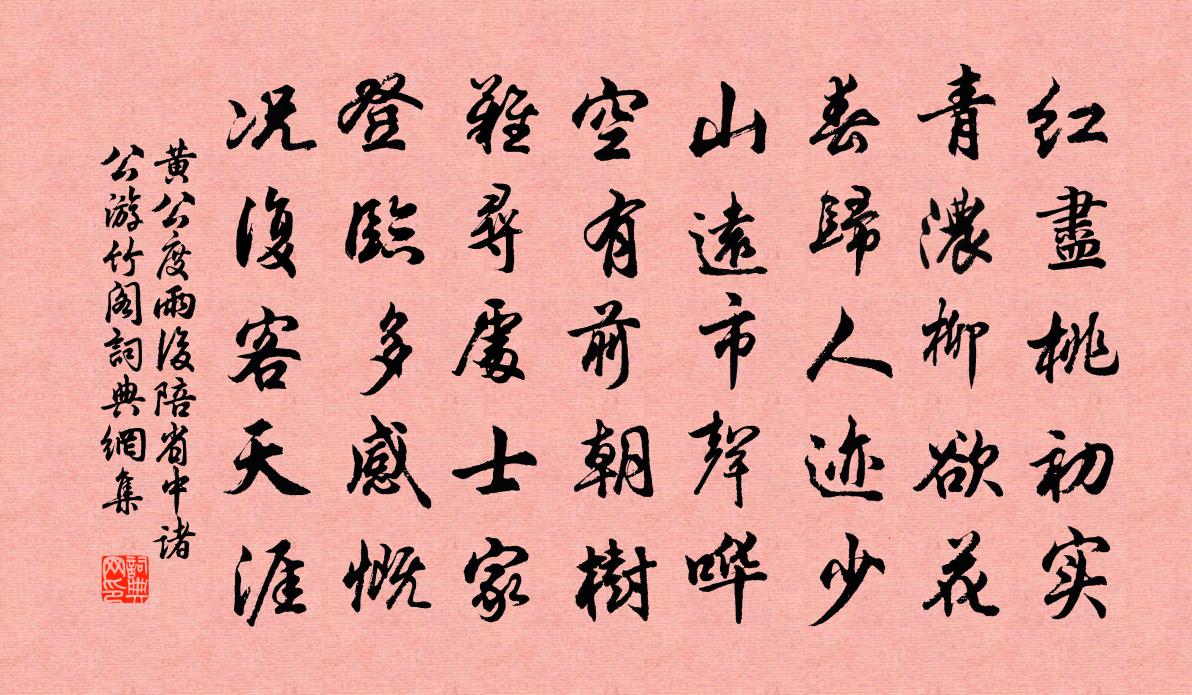 红盡桃初实
青濃柳欲花
春歸人迹少
山遠市聲哗
空有前朝樹
難尋處士家
登臨多感慨
况復客天涯
黄公度雨後陪省中诸
公游竹阁詞典網集
詞典
网印